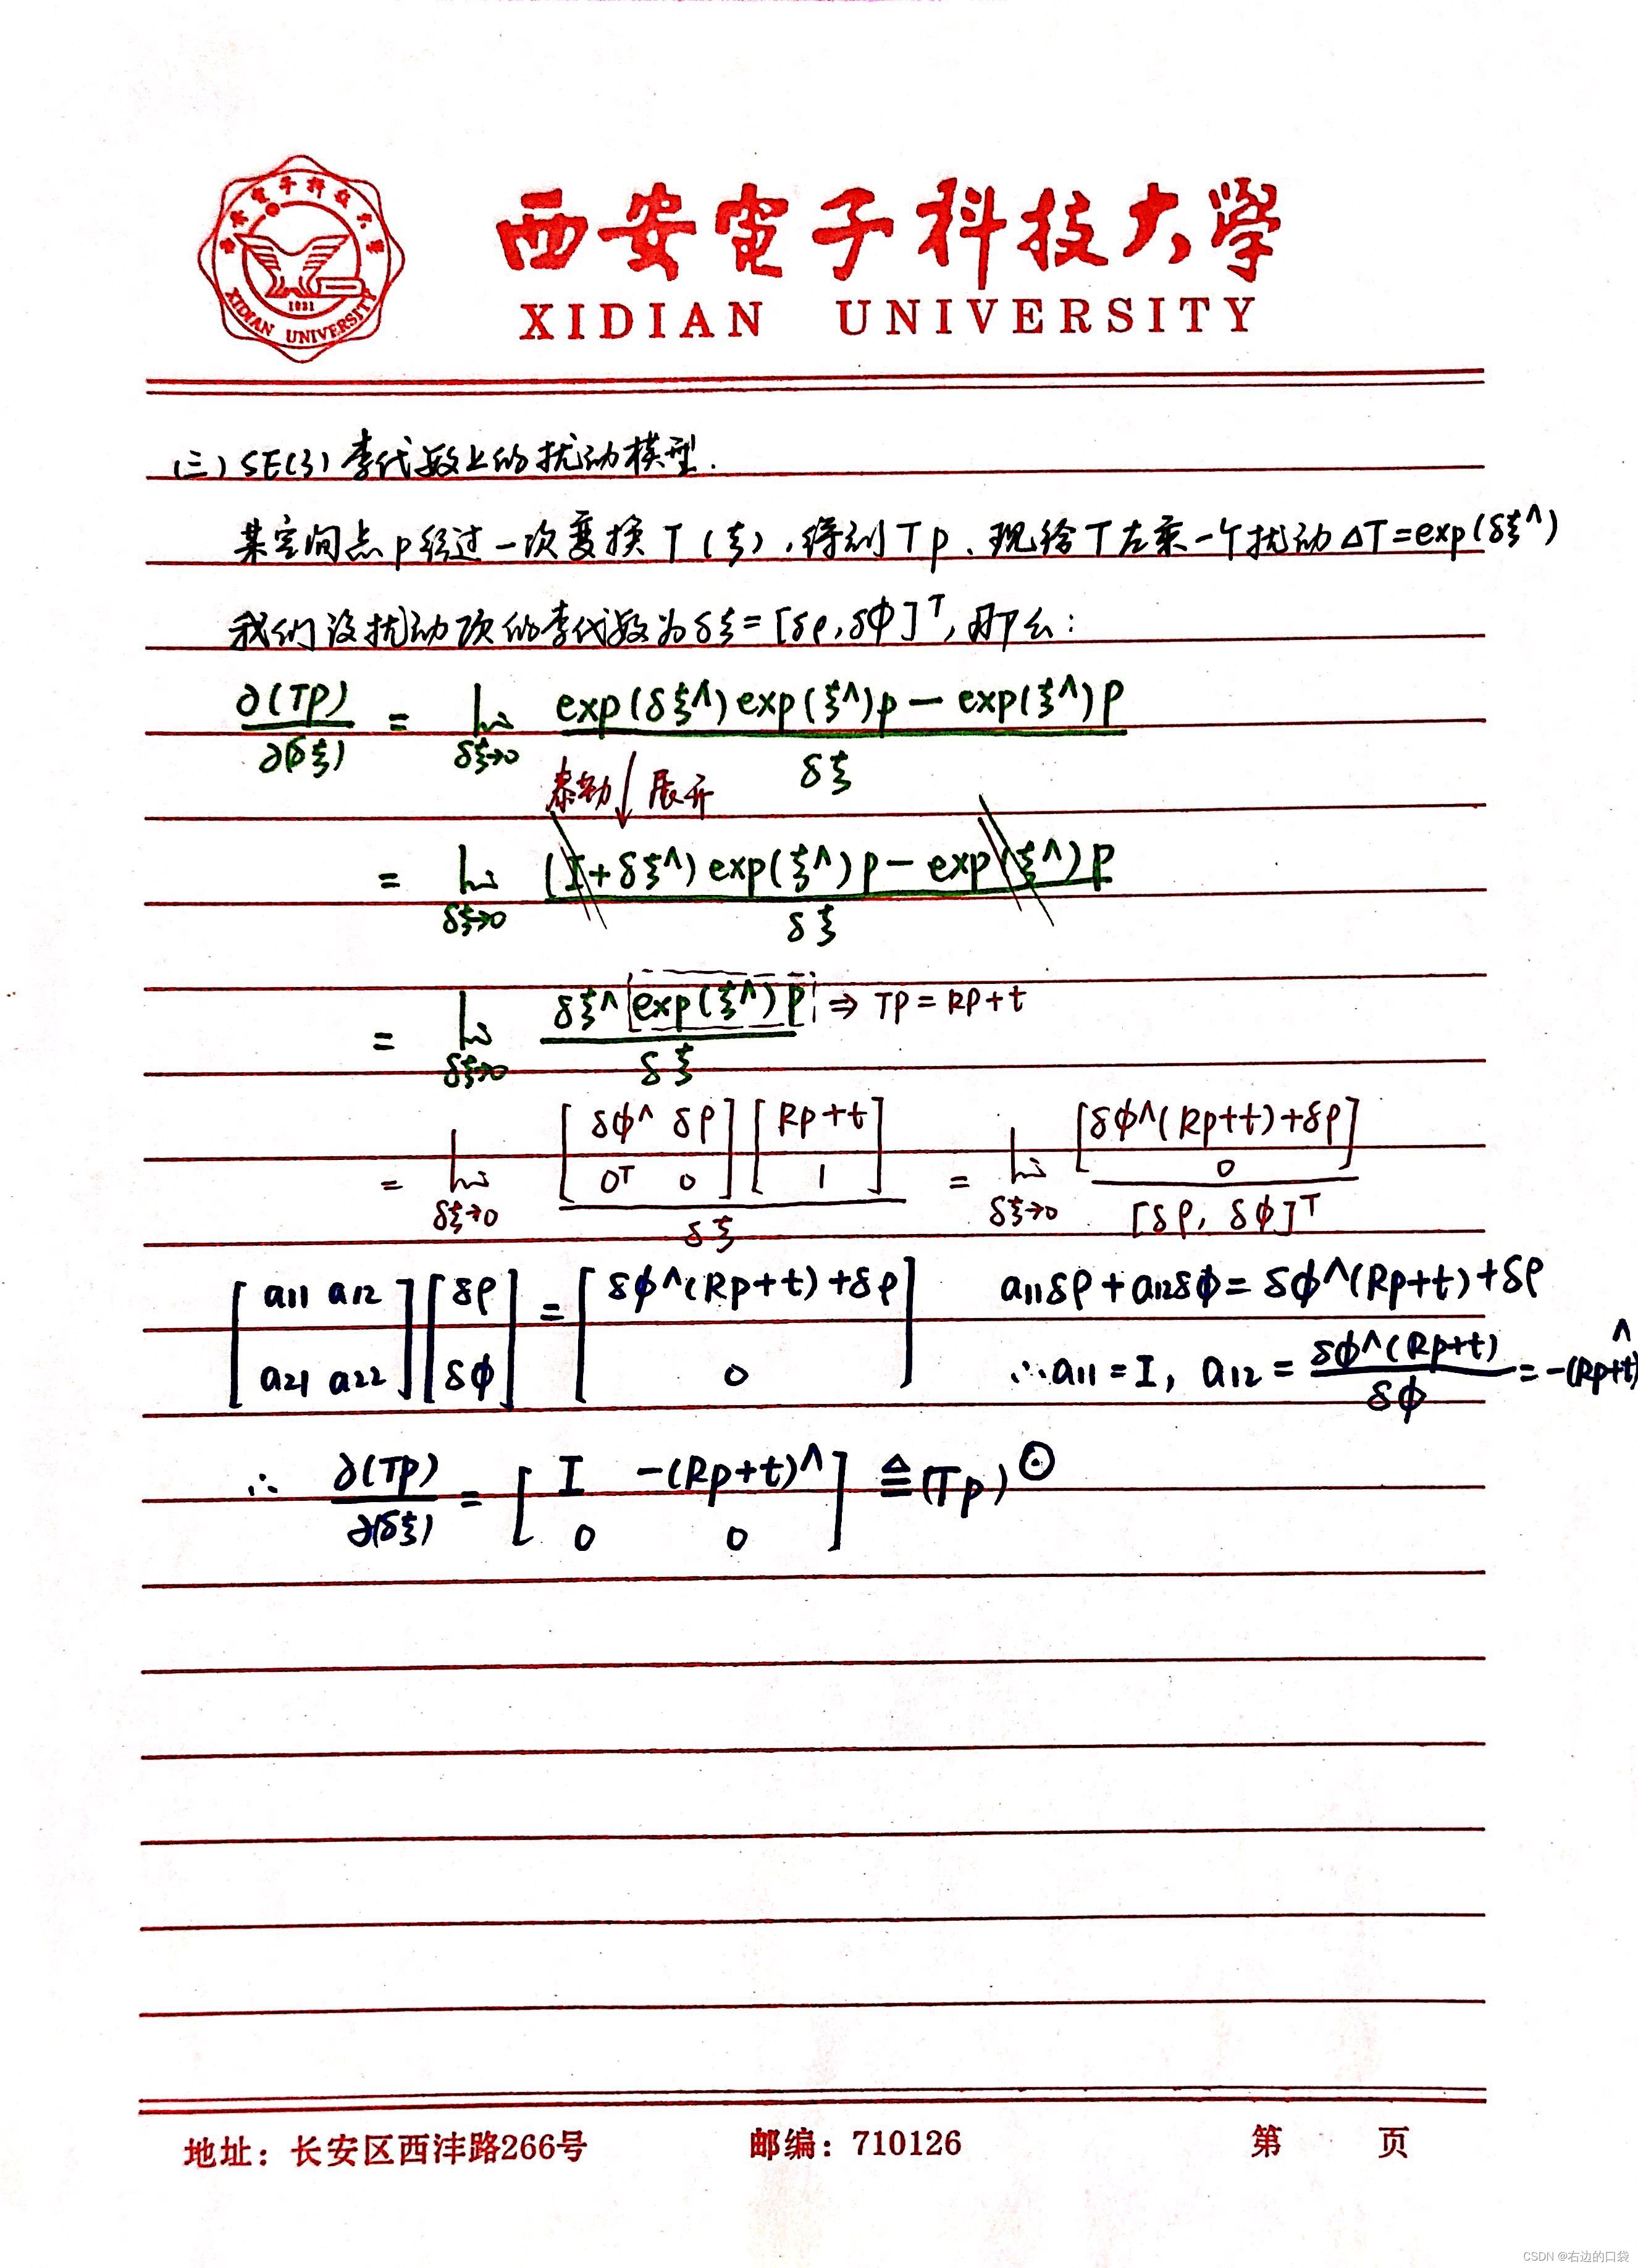 西安電子科技大學
XIDIAN UNIVERSITY
西安電子科技大學
1931
XIDIAN UNIVERSITY
(三) SE(3) 李代数上的扰动模型.
某空间点p经过一次变换T(ξ),得到Tp.现给T左乘一个扰动ΔT=exp(δξ^)
我们设扰动项的李代数为δξ=[δρ,δϕ]ᵀ,那么:
∂(Tp)/∂(δξ) = lim δξ→0 (exp(δξ^)exp(ξ^)p − exp(ξ^)p)/δξ
泰勒↓展开
= lim δξ→0 ((I+δξ^)exp(ξ^)p − exp(ξ^)p)/δξ
= lim δξ→0 (δξ^ exp(ξ^)p)/δξ ⇒ Tp=Rp+t
= lim δξ→0 [δϕ^ δρ; 0ᵀ 0][Rp+t; 1]/δξ = lim δξ→0 [δϕ^(Rp+t)+δρ; 0]/[δρ, δϕ]ᵀ
[a11 a12; a21 a22][δρ; δϕ] = [δϕ^(Rp+t)+δρ; 0] a11δρ+a12δϕ=δϕ^(Rp+t)+δρ
∴a11=I, a12=δϕ^(Rp+t)/δϕ=-(Rp+t)^
∴ ∂(Tp)/∂(δξ) = [I -(Rp+t)^; 0 0] ≜ (Tp)^⊙
地址：长安区西沣路266号 邮编：710126 第 页
CSDN @右边的口袋